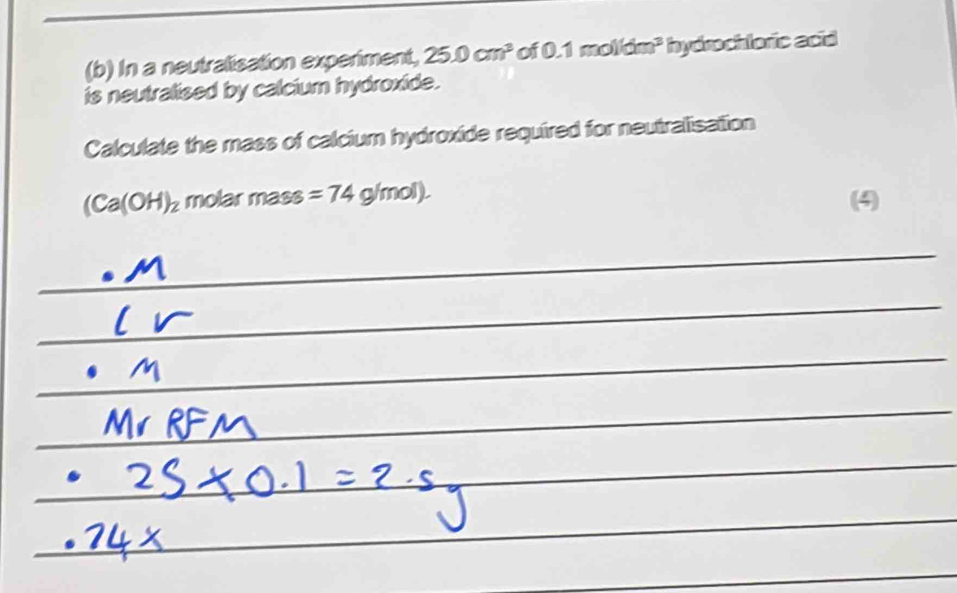 (b) In a neutralisation experiment, 25.0 cm³ of 0.1 mol/dm³ hydrochloric acid
is neutralised by calcium hydroxide.
Calculate the mass of calcium hydroxide required for neutralisation
(Ca(OH)₂ molar mass = 74 g/mol).
(4)
• M
C V
• M
Mr RFM
• 25 × 0.1 = 2.5g
• 74 ×